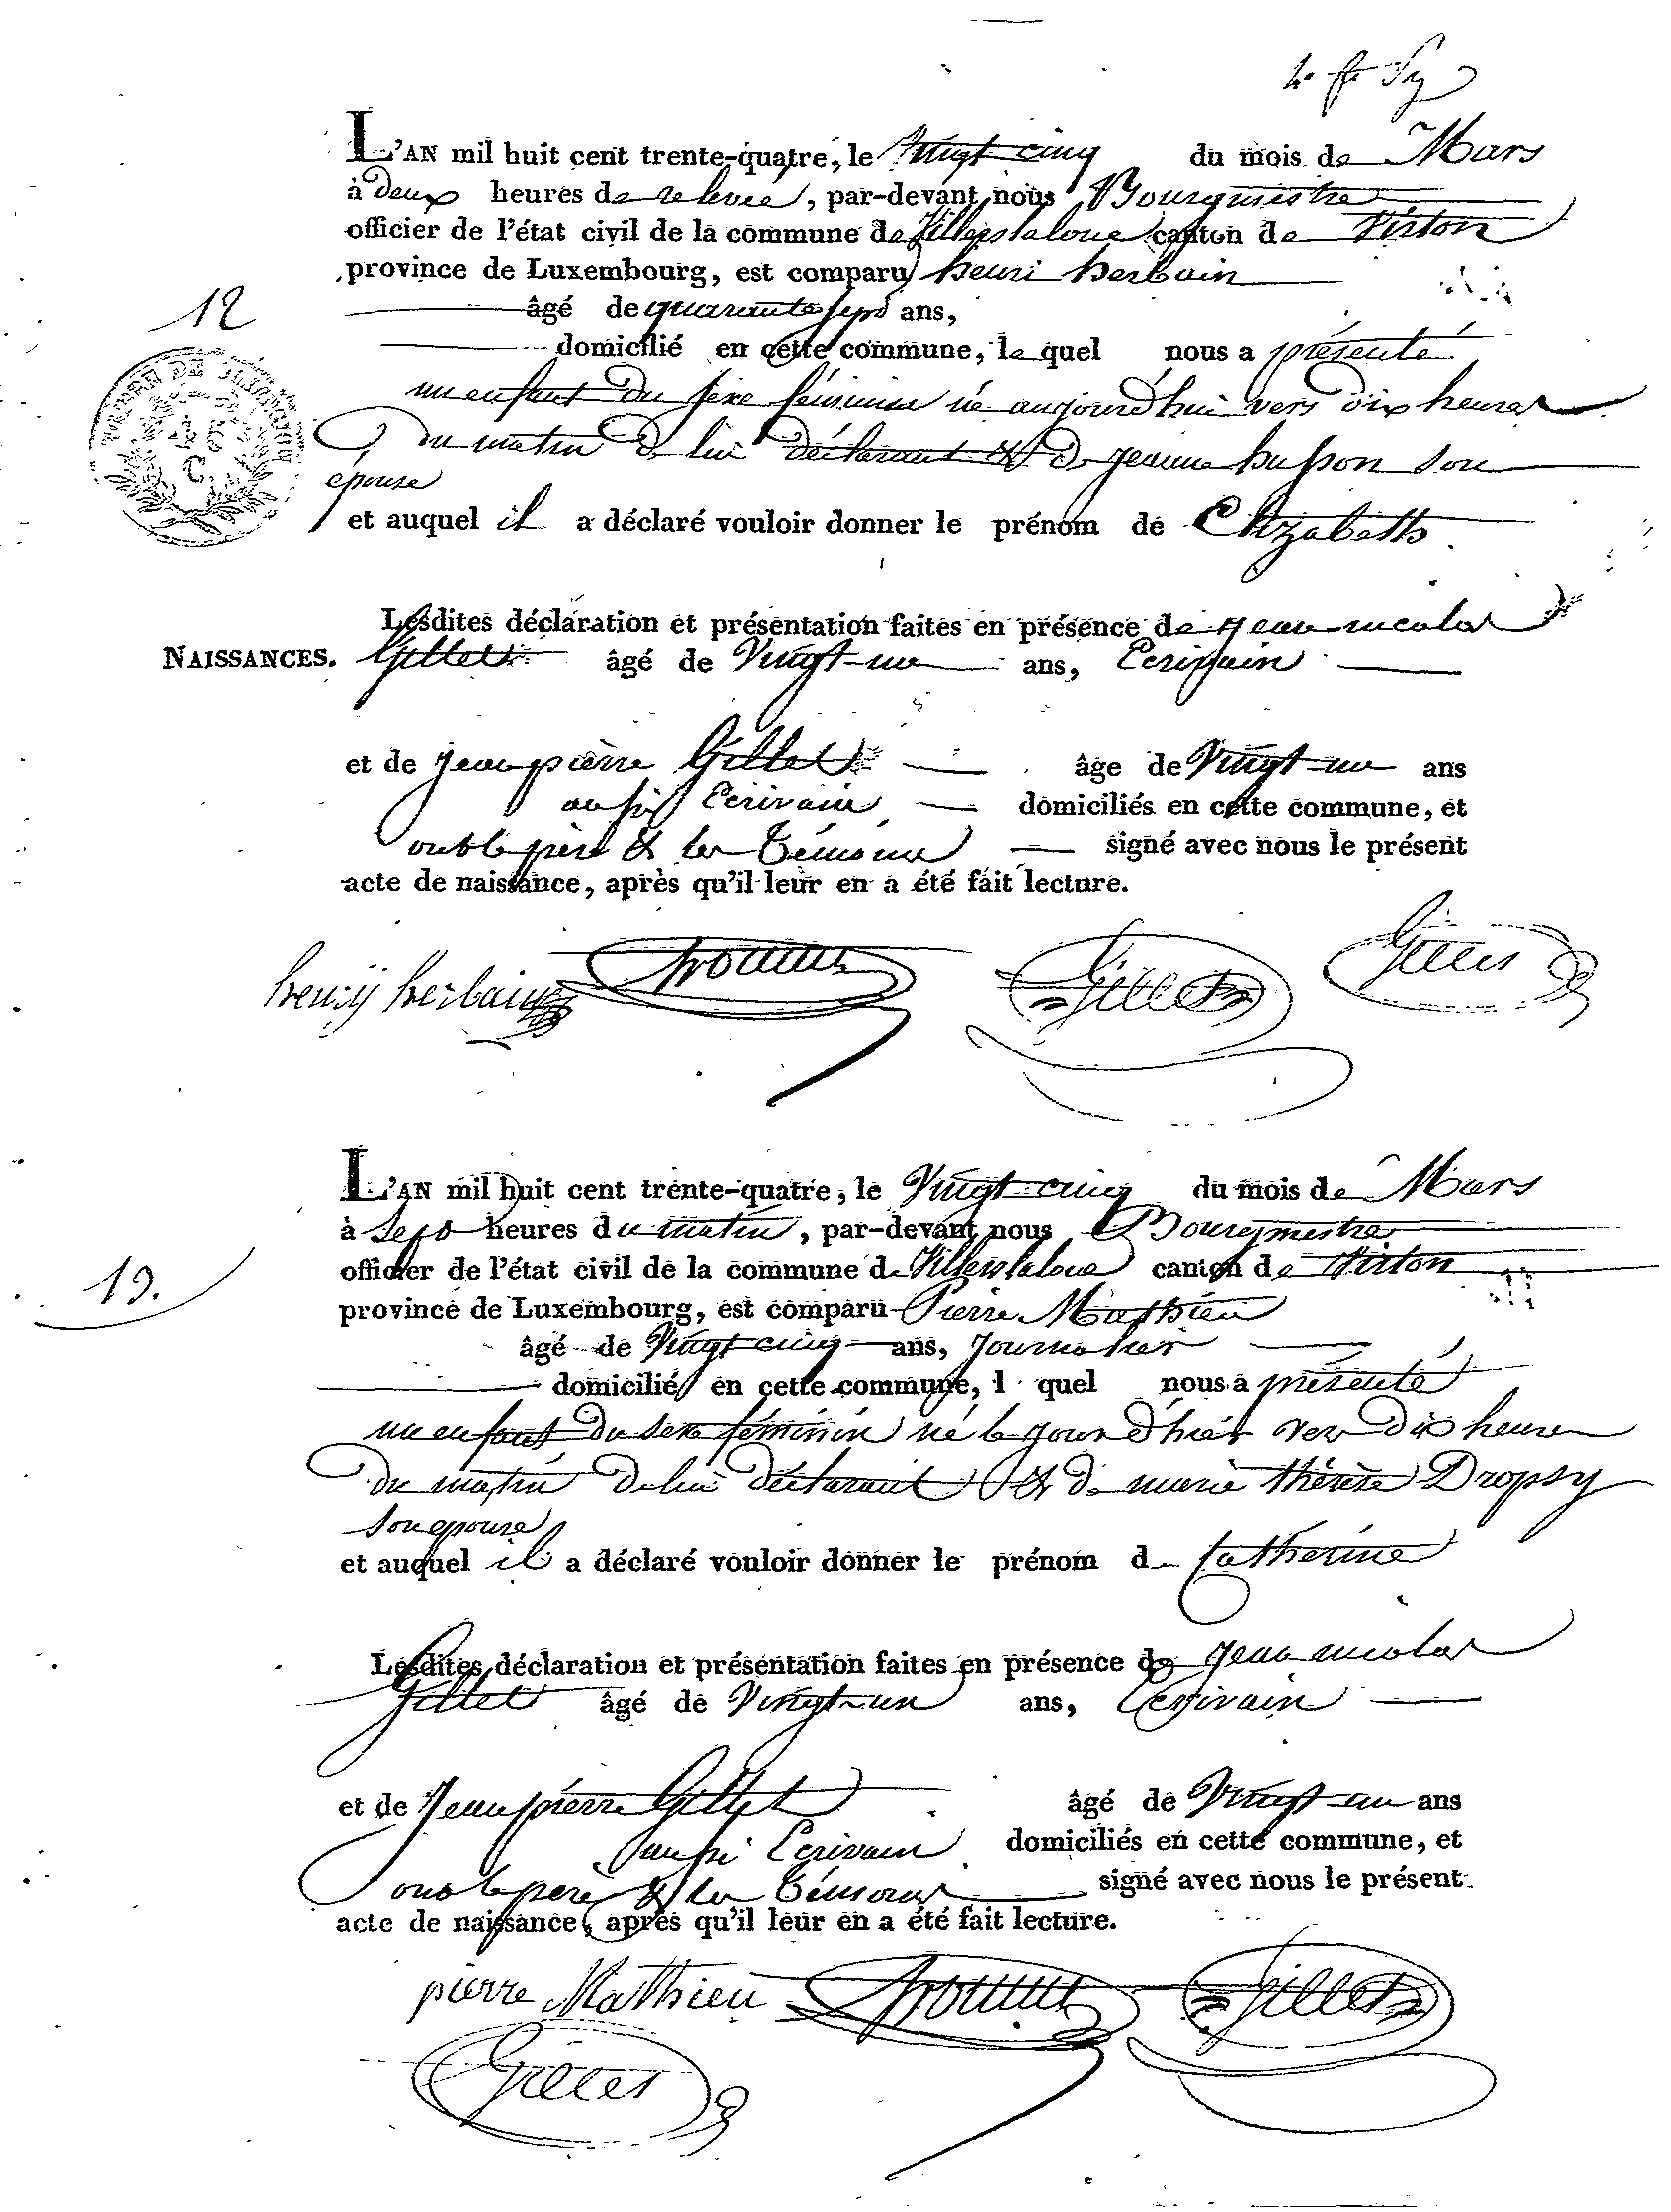 L'AN mil huit cent trente-quatre, le Vingt cinq du mois de Mars
à deux heures de relevée, par-devant nous Bourgmestre
officier de l'état civil de la commune de Villerslaloue canton de Virton
province de Luxembourg, est comparu henri herbain
12
âgé de quarante sept ans,
domicilié en cette commune, le quel nous a présenté
un enfant du sexe féminin né aujourd'hui vers dix heures
du matin de lui déclarant & de jeanne husson son
épouse
et auquel il a déclaré vouloir donner le prénom de Elizabeth
Lesdites déclaration et présentation faites en présence de jean nicolas
NAISSANCES. Gillet âgé de Vingt-un ans, Ecrivain
et de jean pierre Gillet âge de Vingt-un ans
aussi Ecrivain domiciliés en cette commune, et
ont le père & les Témoins signé avec nous le présent
acte de naissance, après qu'il leur en a été fait lecture.
henry herbain Gillet Gillet
L'AN mil huit cent trente-quatre, le Vingt cinq du mois de Mars
à sept heures du matin, par-devant nous Bourgmestre
officier de l'état civil de la commune de Villerslaloue canton de Virton
13.
province de Luxembourg, est comparu Pierre Mathieu
âgé de Vingt cinq ans, journalier
domicilié en cette commune, l quel nous a présenté
un enfant du sexe féminin né le jour d'hier vers dix heures
du matin de lui déclarant & de marie thérèse Dropsy
son épouse
et auquel il a déclaré vouloir donner le prénom de Catherine
Lesdites déclaration et présentation faites en présence de jean nicolas
Gillet âgé de Vingt-un ans, Ecrivain
et de jean pierre Gillet âgé de Vingt-un ans
aussi Ecrivain domiciliés en cette commune, et
ont le père & les Témoins signé avec nous le présent
acte de naissance, après qu'il leur en a été fait lecture.
pierre Mathieu Gillet
Gillet